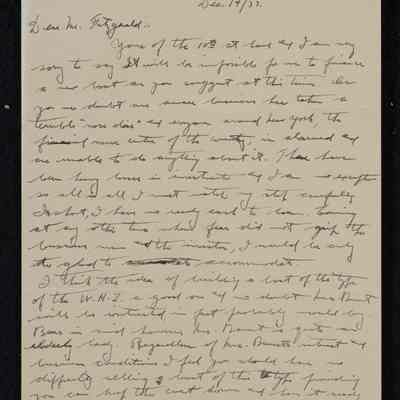 Dec. 14/37.
Dear Mr. Fitzgerald..
Yours of the 10th at hand and I am very
sorry to say it will be impossible for me to finance
a new boat as you suggest at this time. As
you no doubt are aware business has taken a
terrible "nose dive" and everyone around New York, the
financial nerve center of the country, is alarmed and
are unable to do anything about it. There have
been heavy losses in investments and I am no exception
so all in all I must watch my step carefully
In short, I have no ready cash to loan.
at any other time when fear did not grip the
business man and the investor, I would be only
too glad to accommodate
I think the idea of building a boat of the type
of the W.H.I. a good one and no doubt Mrs Barrett
will be interested in
Mrs Barrett is quite an
elderly lady. Regardless of Mrs. Barretts interest and
business conditions I feel you should have no
difficulty selling a boat of this type providing
you can keep the cost down and have it ready